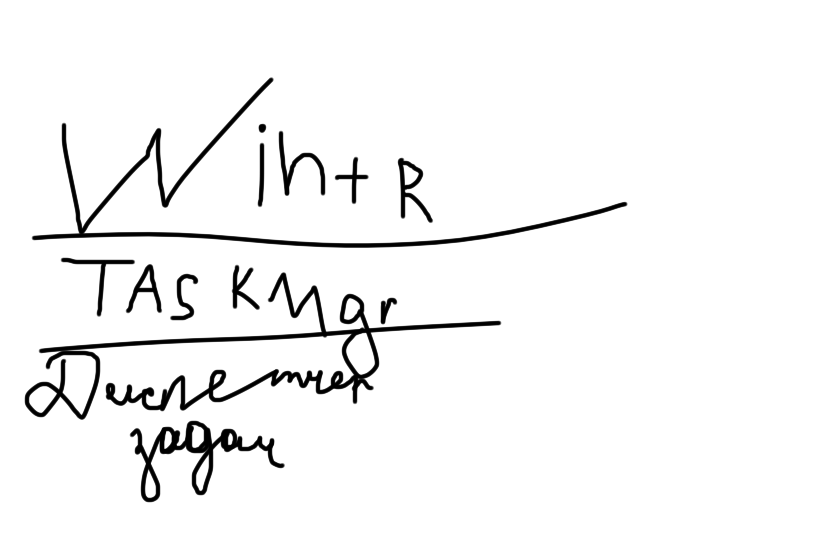 Win+R
TASKMgr
Диспетчер
задач